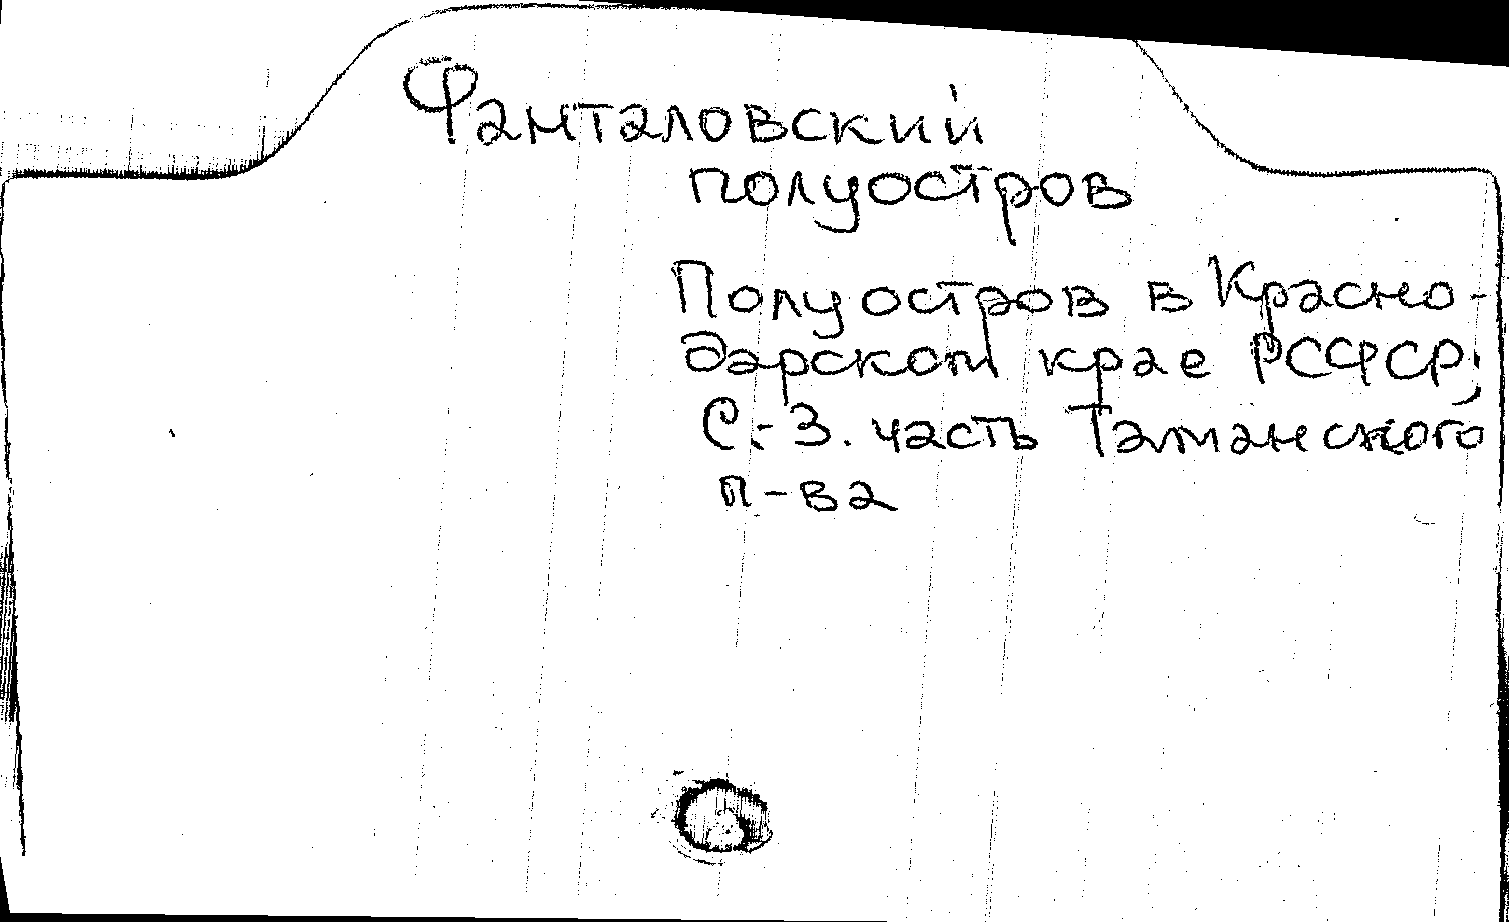 Фанталовский
полуостров
Полуостров в Красно-
дарском крае РСФСР;
С.-З. часть Таманского
п-ва